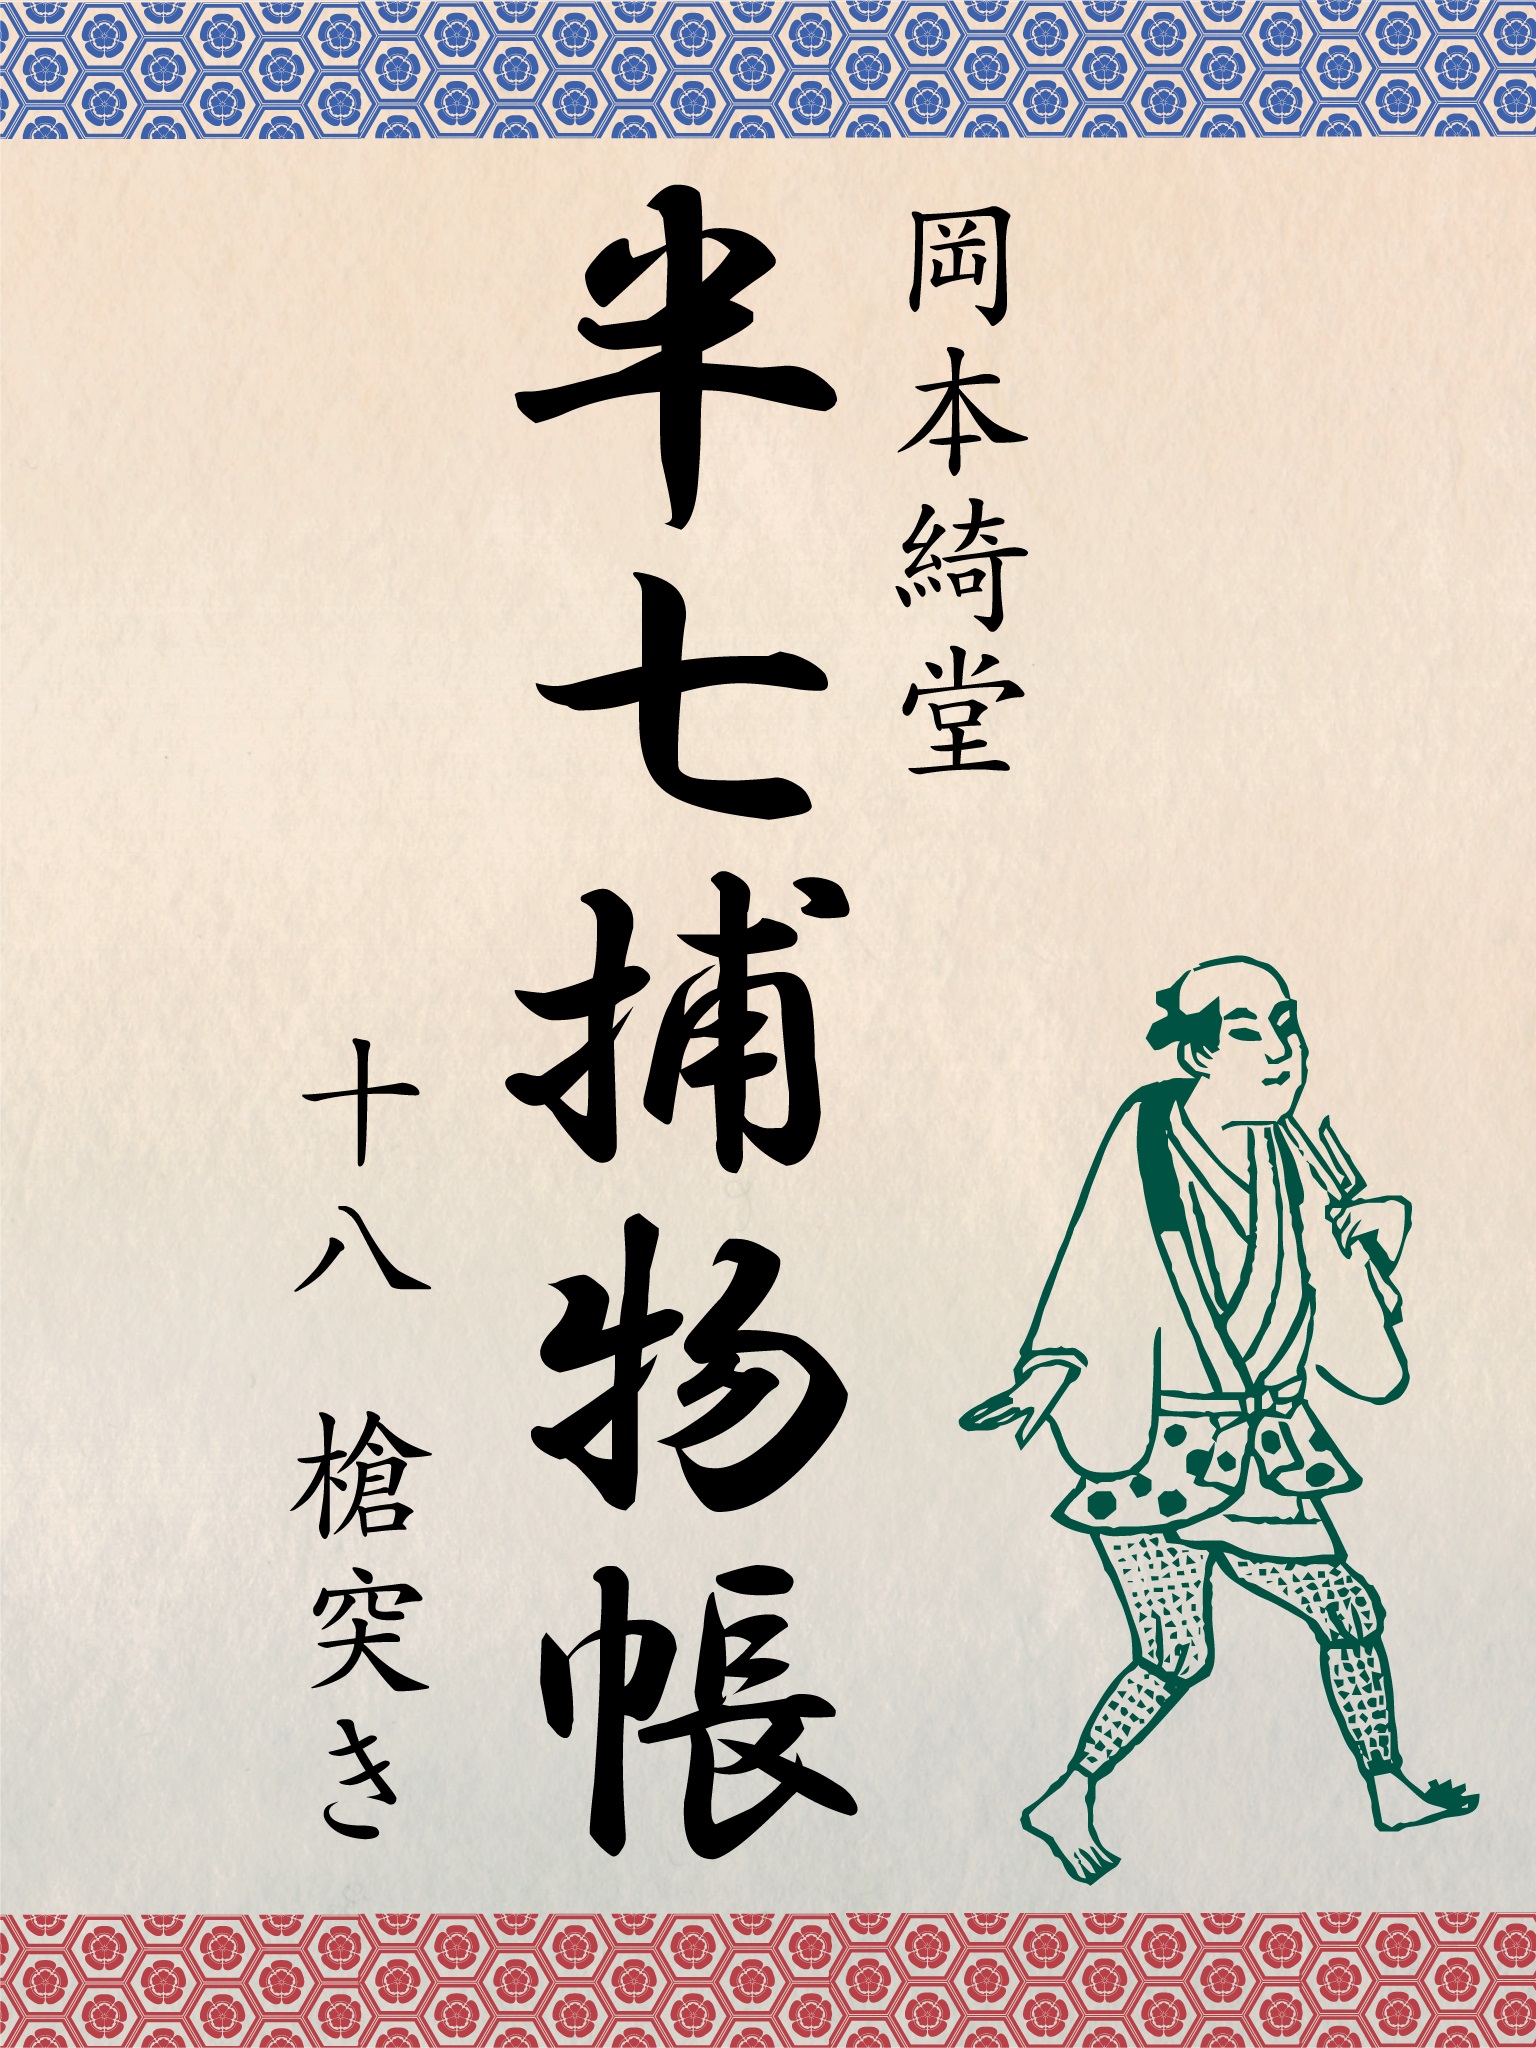 岡本綺堂
半七捕物帳
十八 槍突き